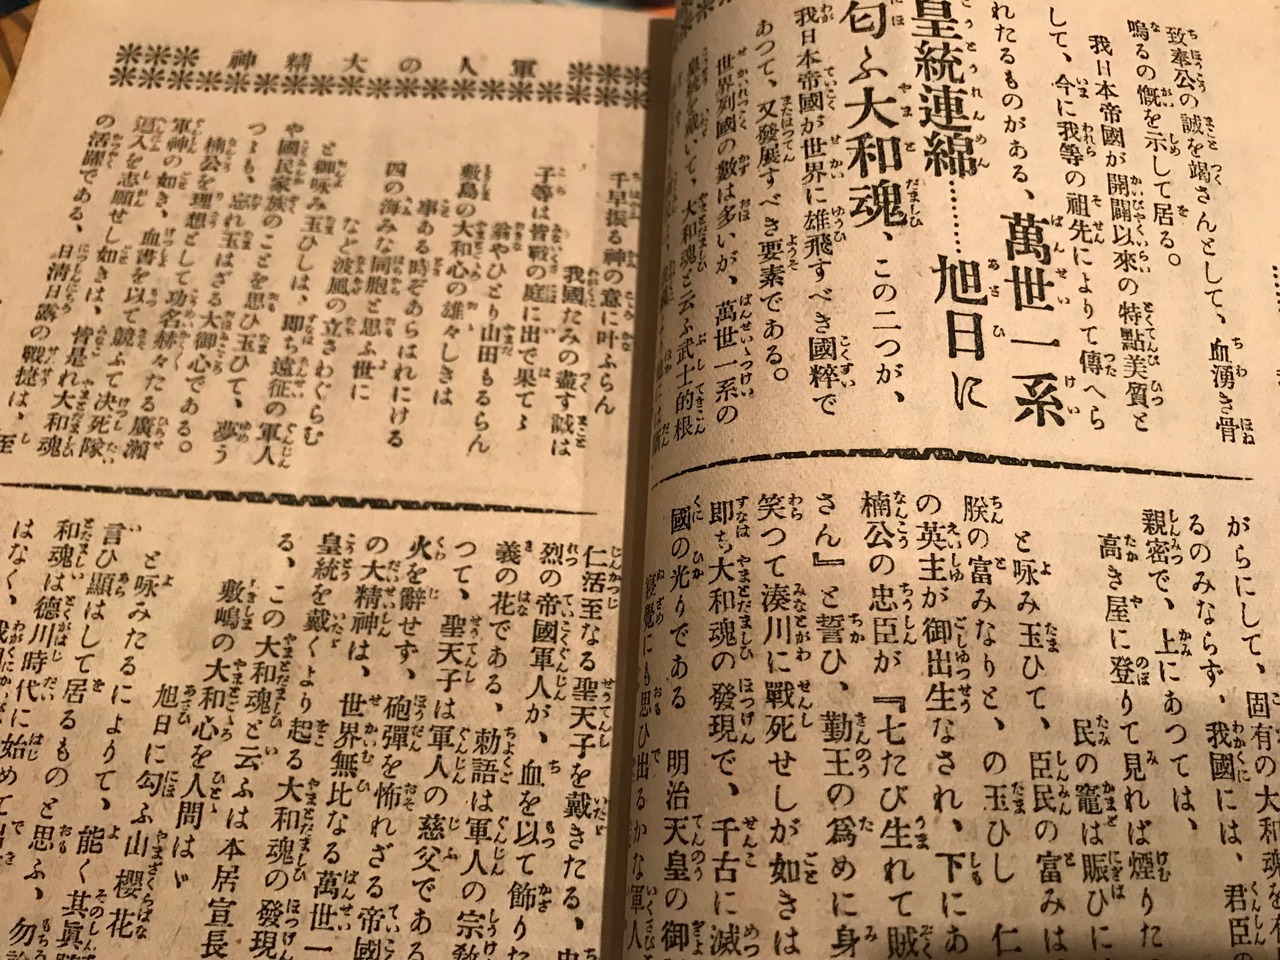 致奉公の誠を竭さんとして、血湧き骨
鳴るの慨を示して居る。
我日本帝國が開闢以來の特點美質と
して、今に我等の祖先によりて傳へら
れたるものがある、萬世一系
皇統連綿………旭日に
匂ふ大和魂、この二つが、
我日本帝國が世界に雄飛すべき國粹で
あつて、又發展すべき要素である。
世界列國の數は多いが、萬世一系の
皇統を戴いて、大和魂と云ふ武士的根
がらにして、固有の大和魂を有
るのみならず、我國には、君臣の
親密で、上にあつては、
高き屋に登りて見れば煙りた
民の竈は賑ひに
と咏み玉ひて、臣民の富みは
朕の富みなりと、の玉ひし 仁
の英主が御出生なされ、下にあ
楠公の忠臣が『七たび生れて賊
さん』と誓ひ、勤王の爲めに身
笑つて湊川に戰死せしが如きは
即ち大和魂の發現で、千古に滅
國の光りである 明治天皇の御
寢覺にも思ひ出るかな軍人
軍人の大精神
千早振る神の意に叶ふらん
我國たみの盡す誠は
子等は皆戰の庭に出で果てゝ
翁やひとり山田もるらん
敷島の大和心の雄々しきは
事ある時ぞあらはれにける
四の海みな同胞と思ふ世に
など波風の立さわぐらむ
と御咏み玉ひしは、即ち遠征の軍人
や國民家族のことを思ひ玉ひて、夢う
つゝも、忘れ玉はざる大御心である。
楠公を理想として功名赫々たる廣瀬
軍神の如き、血書を以て競ふて决死隊
這入を志願せし如きは、皆是れ大和魂
の活躍である、日清日露の戰捷は、至
仁活至なる聖天子を戴きたる、忠
烈の帝國軍人が、血を以て飾りた
義の花である、勅語は軍人の宗敎
つて、聖天子は軍人の慈父である
火を辭せず、砲彈を怖れざる帝國
の大精神は、世界無比なる萬世一
皇統を戴くより起る大和魂の發現
る、この大和魂と云ふは本居宣長
敷嶋の大和心を人問はゞ
旭日に匂ふ山櫻花
と咏みたるによりて、能く其眞
言ひ顯はして居るものと思ふ、勿論
和魂は德川時代に始めて出
はなく、我國